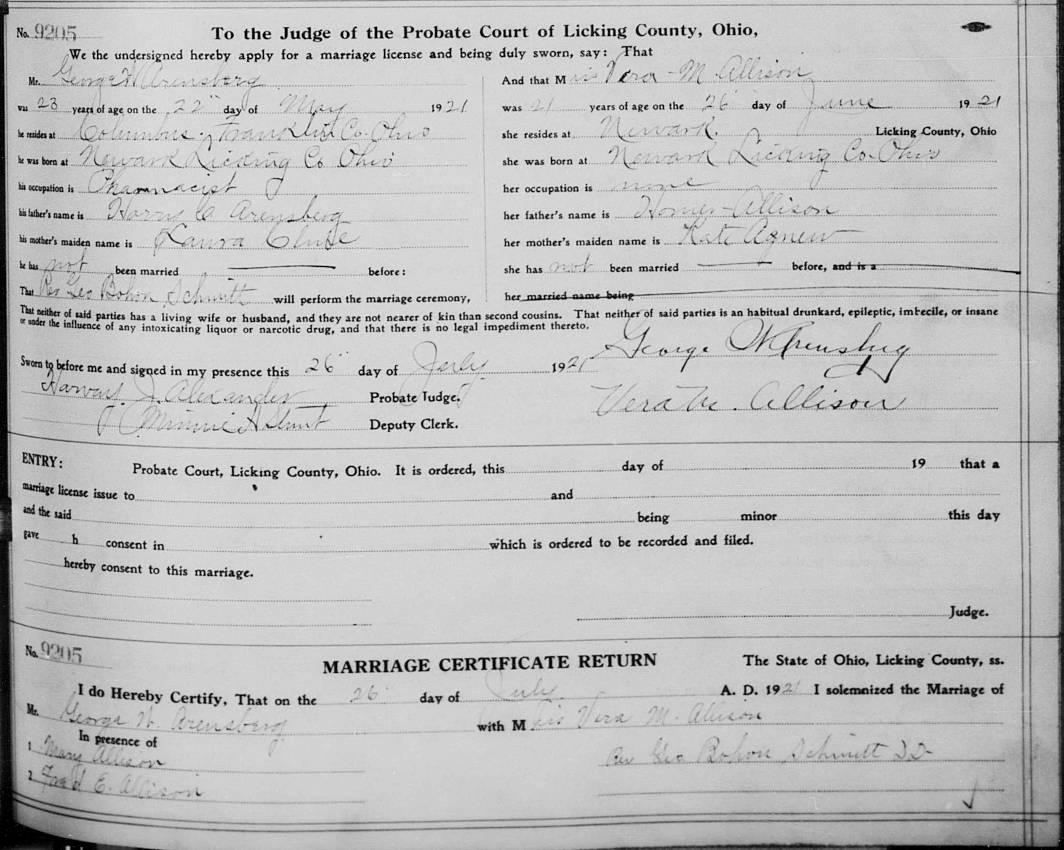 No. 9205
To the Judge of the Probate Court of Licking County, Ohio,
We the undersigned hereby apply for a marriage license and being duly sworn, say: That
Mr. George W. Arensberg
was 23 years of age on the 22" day of May 1921
he resides at Columbus, Franklin Co. Ohio
he was born at Newark Licking Co Ohio
his occupation is Pharmacist
his father's name is Harry C Arensberg
his mother's maiden name is Laura
he has not been married before:
That Rev Geo Bohon Schmitt will perform the marriage ceremony,
And that Miss Vera M. Allison
was 21 years of age on the 26" day of June 1921
she resides at Newark. Licking County, Ohio
she was born at Newark Licking Co. Ohio
her occupation is none
her father's name is Homer Allison
her mother's maiden name is Kate Agnew
she has not been married before, and is a
her married name being
That neither of said parties has a living wife or husband, and they are not nearer of kin than second cousins. That neither of said parties is an habitual drunkard, epileptic, imbecile, or insane
or under the influence of any intoxicating liquor or narcotic drug, and that there is no legal impediment thereto.
George W Arensberg
Sworn to before me and signed in my presence this 26" day of July 1921
Vera M. Allison
J. Alexander Probate Judge.
Minnie H Deputy Clerk.
ENTRY:
Probate Court, Licking County, Ohio. It is ordered, this day of 19 that a
marriage license issue to and
and the said being minor this day
gave h consent in which is ordered to be recorded and filed.
hereby consent to this marriage.
Judge.
No. 9205
MARRIAGE CERTIFICATE RETURN
The State of Ohio, Licking County, ss.
I do Hereby Certify, That on the 26" day of July A. D. 1921 I solemnized the Marriage of
Mr. George W. Arensberg with Miss Vera M. Allison
In presence of
1 Mary Allison
2 E. Allison
Rev Geo Bohon Schmitt DD